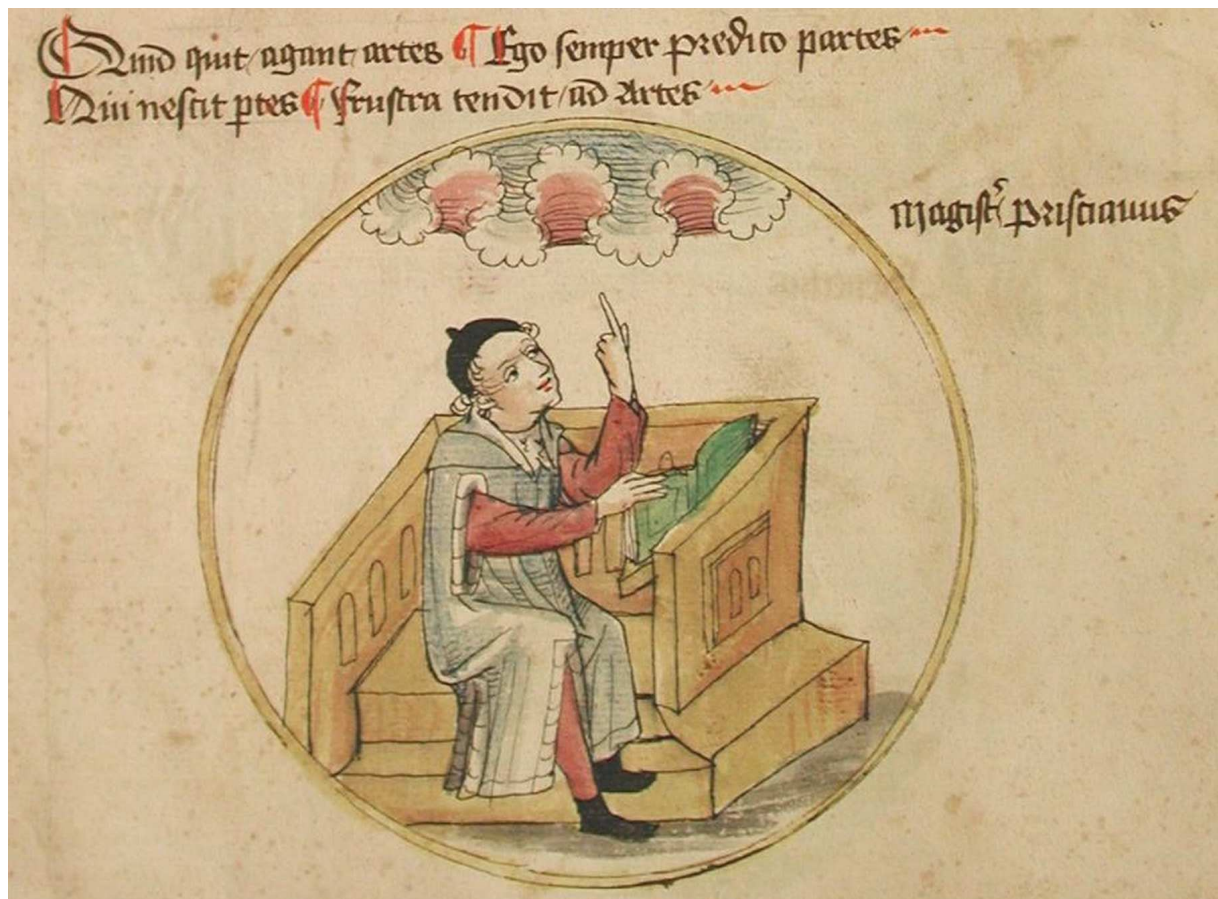 Quid quit agant artes ¶ Ego semper predico partes
Qui nescit ptes ¶ frustra tendit ad Artes
Magistꝰ priscianus